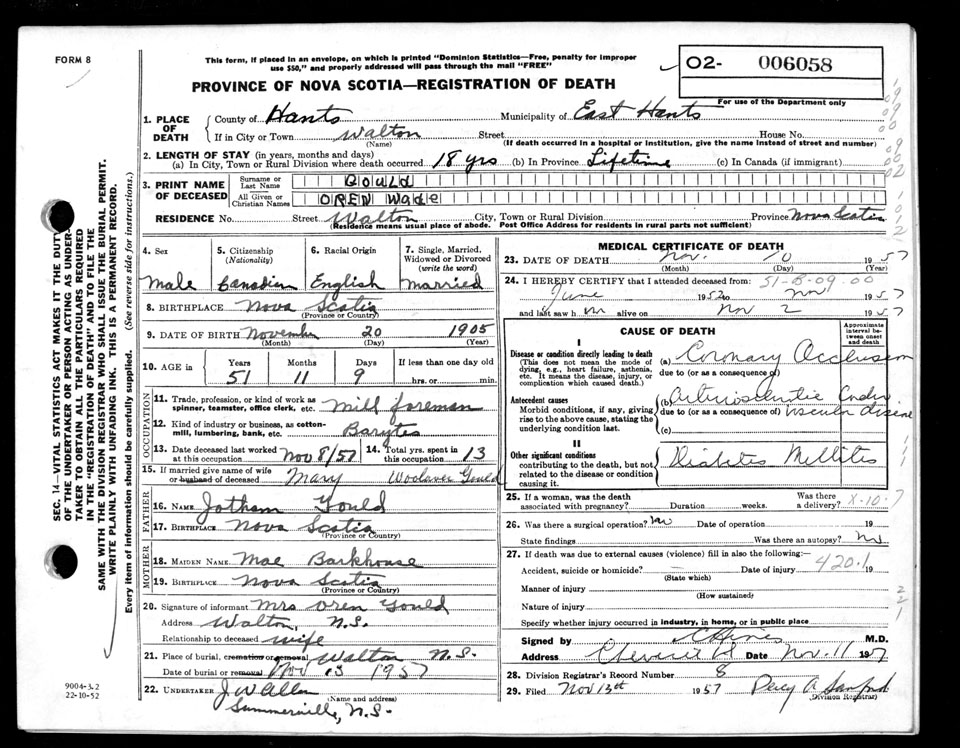 FORM 8
This form, if placed in an envelope, on which is printed "Dominion Statistics—Free, penalty for improper
use $50," and properly addressed will pass through the mail "FREE"
PROVINCE OF NOVA SCOTIA—REGISTRATION OF DEATH
O2- 006058
For use of the Department only
1. PLACE OF DEATH County of Hants Municipality of East Hants
If in City or Town Walton Street House No.
(Name) (If death occurred in a hospital or institution, give the name instead of street and number)
2. LENGTH OF STAY (in years, months and days)
(a) In City, Town or Rural Division where death occurred 18 yrs (b) In Province Lifetime (c) In Canada (if immigrant)
3. PRINT NAME OF DECEASED Surname or Last Name Gould
All Given or Christian Names OREN Wade
RESIDENCE No. Street Walton City, Town or Rural Division Province Nova Scotia
(Residence means usual place of abode. Post Office Address for residents in rural parts not sufficient)
4. Sex Male
5. Citizenship (Nationality) Canadian
6. Racial Origin English
7. Single, Married, Widowed or Divorced (write the word) Married
8. BIRTHPLACE Nova Scotia
(Province or Country)
9. DATE OF BIRTH November 20 1905
(Month) (Day) (Year)
10. AGE in Years 51 Months 11 Days 9 If less than one day old
hrs. or min.
OCCUPATION
11. Trade, profession, or kind of work as spinner, teamster, office clerk, etc. mill foreman
12. Kind of industry or business, as cotton-mill, lumbering, bank, etc. Barytes
13. Date deceased last worked at this occupation Nov 8/57
14. Total yrs. spent in this occupation 13
15. If married give name of wife or husband of deceased Mary Woolaver Gould
FATHER
16. NAME Jotham Gould
17. BIRTHPLACE Nova Scotia
(Province or Country)
MOTHER
18. MAIDEN NAME Mae Barkhouse
19. BIRTHPLACE Nova Scotia
(Province or Country)
20. Signature of informant Mrs Oren Gould
Address Walton, N.S.
Relationship to deceased wife
21. Place of burial, cremation or removal Walton N.S.
Date of burial or removal Nov 13 1957
22. UNDERTAKER J W Allen
(Name and address)
Summerville, N.S.
MEDICAL CERTIFICATE OF DEATH
23. DATE OF DEATH Nov. 10 1957
(Month) (Day) (Year)
24. I HEREBY CERTIFY that I attended deceased from: 51-B-09.00
June 1952 to Nov 1957
and last saw h im alive on Nov 2 1957
CAUSE OF DEATH
Approximate interval between onset and death
I
Disease or condition directly leading to death
(This does not mean the mode of dying, e.g., heart failure, asthenia, etc. It means the disease, injury, or complication which caused death.)
(a) Coronary Occlusion
due to (or as a consequence of)
Antecedent causes
Morbid conditions, if any, giving rise to the above cause, stating the underlying condition last.
(b)
due to (or as a consequence of) vascular disease
(c)
II
Other significant conditions
contributing to the death, but not related to the disease or condition causing it.
Diabetes Mellitis
25. If a woman, was the death associated with pregnancy? Duration weeks. Was there a delivery? X-10-7
26. Was there a surgical operation? no Date of operation 19
State findings Was there an autopsy? no
27. If death was due to external causes (violence) fill in also the following:—
Accident, suicide or homicide? Date of injury 19
(State which)
420.1
Manner of injury
(How sustained)
Nature of injury
Specify whether injury occurred in industry, in home, or in public place
Signed by M.D.
Address Date Nov. 11 1957
28. Division Registrar's Record Number 8
29. Filed Nov 13th 1957 Percy A Sanford
(Division Registrar)
SEC. 14—VITAL STATISTICS ACT MAKES IT THE DUTY
OF THE UNDERTAKER OR PERSON ACTING AS UNDER-
TAKER TO OBTAIN ALL THE PARTICULARS REQUIRED
IN THE "REGISTRATION OF DEATH" AND TO FILE THE
SAME WITH THE DIVISION REGISTRAR WHO SHALL ISSUE THE BURIAL PERMIT.
WRITE PLAINLY WITH UNFADING INK. THIS IS A PERMANENT RECORD.
Every item of information should be carefully supplied. (See reverse side for instructions.)
9004-3.2
22-10-52